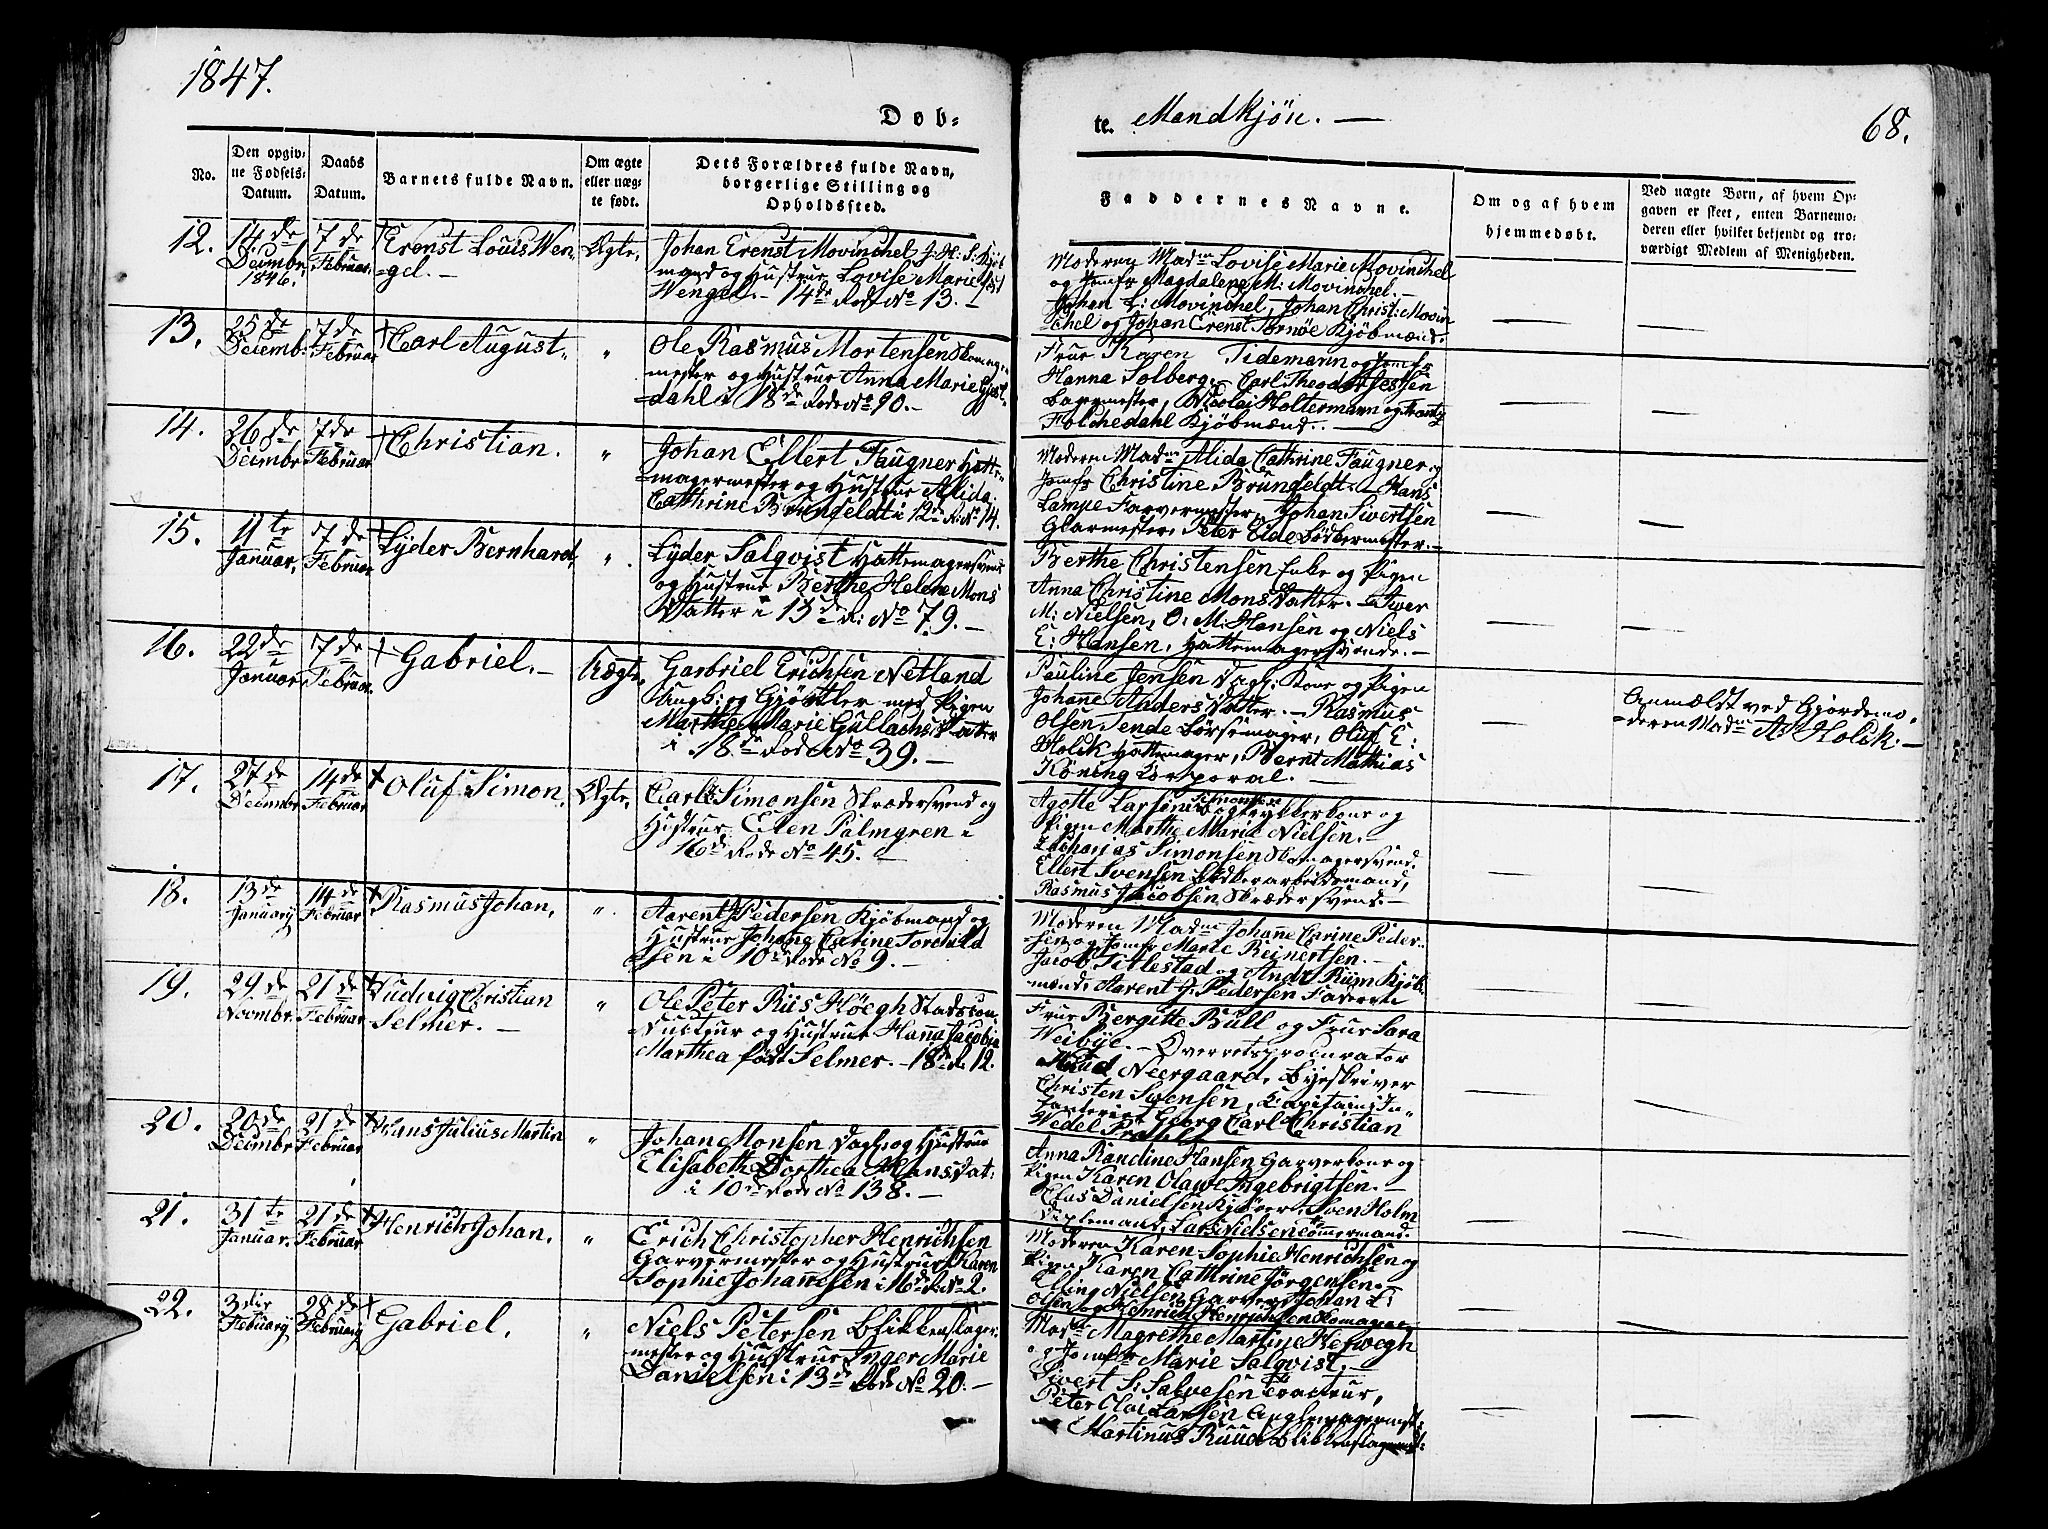 1847.
Døb-
te. Mandkjøn. —
68.
No.
Den opgiv-
ne Fødsels-
Datum.
Daabs
Datum.
Barnets fulde Navn.
Om ægte
eller uæg-
te født.
Dets Forældres fulde Navn,
borgerlige Stilling og
Opholdssted.
Faddernes Navne.
Om og af hvem
hjemmedøbt.
Ved uægte Børn, af hvem Op-
gaven er skeet, enten Barnemo-
deren eller hvilket bekjendt og tro-
værdigt Medlem af Menigheden.
12.
14de
Decembr.
1846.
7de
Februar.
Ernst Louis Wen-
=gel. —
Ægte,
Johan Ernst Movinchel
mand og Hustrue Lovise Marie
Wengel. — 14de Rode No 13. —
Moderen Madm Lovise Marie Movinchel
og Jomfr Magdalene M: Movinchel.
Johan L: Movinchel, Johan Christ: Movin-
=chel og Johan Ernst Tornöe Kjöbmænd.
13.
25de
Decembr.
7de
Februar
Carl August.
"
Ole Rasmus Mortensen
mester og Hustrue Anna Marie
=dahl i 18de Rode No 90. —
Frue Karen Tidemann og Jomfr
Hanna Solberg. Carl Theodor Jessen
Bagermester, Nicolai Holtermann og Frantz
Folchedahl Kjöbmænd. —
14.
26de
Decembr
7de
Februar
Christian.
"
Johan Ellert Faugner Hatte-
=magermester og Hustrue Alida
Cathrine Brunfeldt i 12te R: No 14.
Moderen Madm Alida Cathrine Faugner og
Jomfr Christine Brunfeldt. Hans
Lampe Farvermester, Johan Sivertsen
Glarmester, Peter Eide Bödkermester. —
15.
11te
Januar,
7de
Februar
Lyder Bernhard,
"
Lyder Salqvist Hattemagersvend
og Hustrue Berthe Helene Mons
Datter i 15de R: No 79. —
Berthe Christensen Enke og Pigen
Anna Christine Mons Datter. Iwer
M: Nielsen, O: M: Hansen og Niels
E: Hansen, Hattemagersvende. —
16.
22de
Januar
7de
Februar.
Gabriel. —
Uægte,
Garbriel Erichsen Netland
Ungk: og Gjørtler med Pigen
Marthe Marie Gullachs Datter
i 18de Rode No 39. —
Pauline Jensen Dagl: Kone og Pigen
Johanne Anders Datter. — Rasmus
Olsen Tende Børsemager, Oluf E:
Holck Hattemager, Bernt Mathias
Köning Corporal. —
Anmældt ved Gjordemo-
=deren Madm A: Holck. —
17.
27de
Decembr
14de
Februar
Oluf Simon,
Ægte,
Carl Simonsen Skrædersvend og
Hustrue Elen Palmgren i
16de Rode No 45. —
Agotte Larsine Simonsen Bogtrykkerkone og
Pigen Marthe Marie Nielsen.
Zacharias Simonsen Skomagersvend.
Ellert Svensen Arbeidsmand,
Rasmus Jacobsen Skrædersvend. —
18.
13de
January
14de
Februar
Rasmus Johan,
"
Aarent J. Pedersen Kjöbmand og
Hustrue Johanne Carine Torchild
=sen i 10de Rode No 9. —
Moderen Madme Johanne Carine Peder-
sen og Jomfr Marie Reinertsen. —
Jacob Titlestad og Andr Riim Kjöb-
mænd, Aarent J: Pedersen Faderen
19.
29de
Novmbr.
21de
Februar
Ludvig Christian
Selmer. —
"
Ole Peter Riis Høegh Stadscon-
ducteur og Hustrue Hanna Jacobia
Marthea født Selmer. — 18de R. 12.
Frue Bergitte Bull og Frue Sara
Weibye. — Overretsprocurator
Knud Neergaard, Byeskriver
Christen Svensen, Capitain i In-
fanteriet Georg Carl Christian
Wedel Prahl
20.
20de
Decmbr
21de
Februar
Hans Julius Martin
"
Johan Monsen Dagl: og Hustrue
Elisabeth Dorthea Hans Dat:
i 10de Rode No 138. —
Anna Randine Hansen Garverkone og
Pigen Karen Olava Ingebrigtsen. —
Elas Danielsen Kjöver, Sven Holm
Lars Nielsen Tömmermænd.
21.
31te
Januar.
21de
Februar
Henrich Johan,
"
Erich Christopher Henrichsen
Garvermester og Hustrue Karen
Sophie Johannesen i 16de R. No 2.
Moderen Karen Sophie Henrichsen og
Pigen Karen Cathrine Jörgensen.
Elling Nielsen Garver, Johan L:
Olsen og Henrich Henrichsen Skomager
22.
3die
Febuary
28de
February
Gabriel,
"
Niels Petersen Blikkenslager-
mester og Hustrue Inger Marie
Danielsen i 13de Rode No 20. —
Madm Magrethe Martine Hefwegh
og Jomfr Marie Salqvist. —
Sivert S: Salvesen Tracteur,
Peter Olai Larsen
Martinus Ruud Blikkenslagermest: